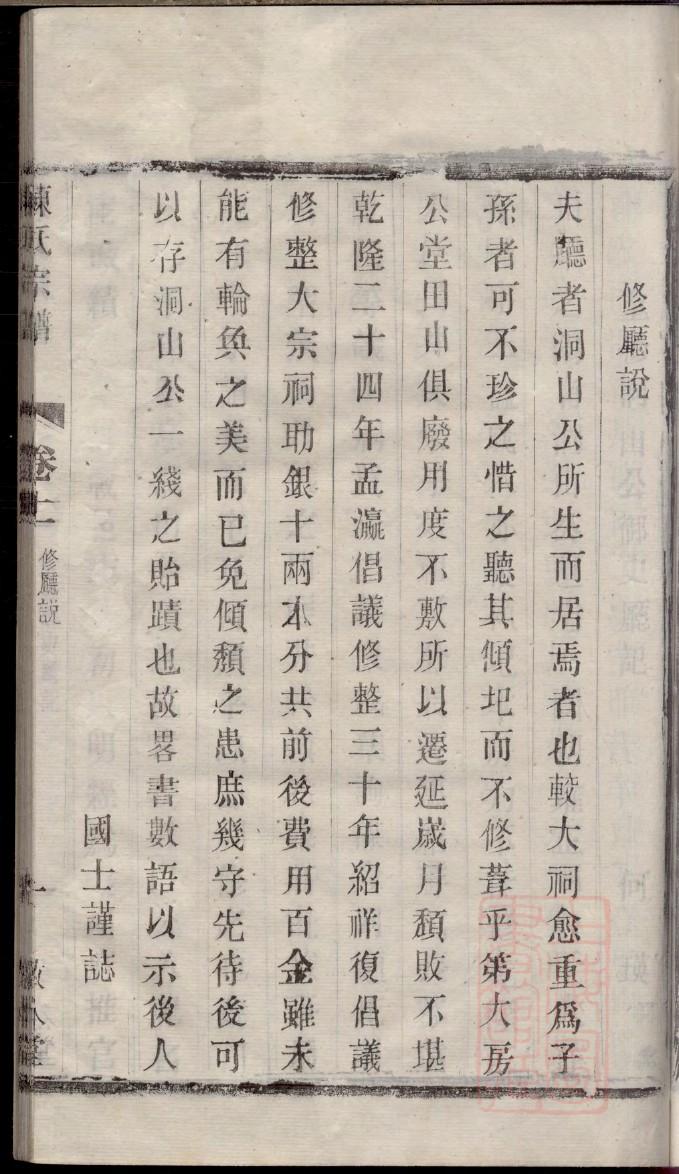 修廳說
夫廳者洞山公所生而居焉者也較大祠愈重爲子
孫者可不珍之惜之聽其傾圯而不修葺乎第大房
公堂田山俱廢用度不敷所以遷延歲月頹敗不堪
乾隆二十四年孟瀛倡議修整三十年紹祥復倡議
修整大宗祠助銀十兩本分共前後費用百金雖未
能有輪奐之美而已免傾頹之患庶幾守先待後可
以存洞山公一綫之貽蹟也故畧書數語以示後人
國士謹誌
陳氏宗譜
卷十
修廳說